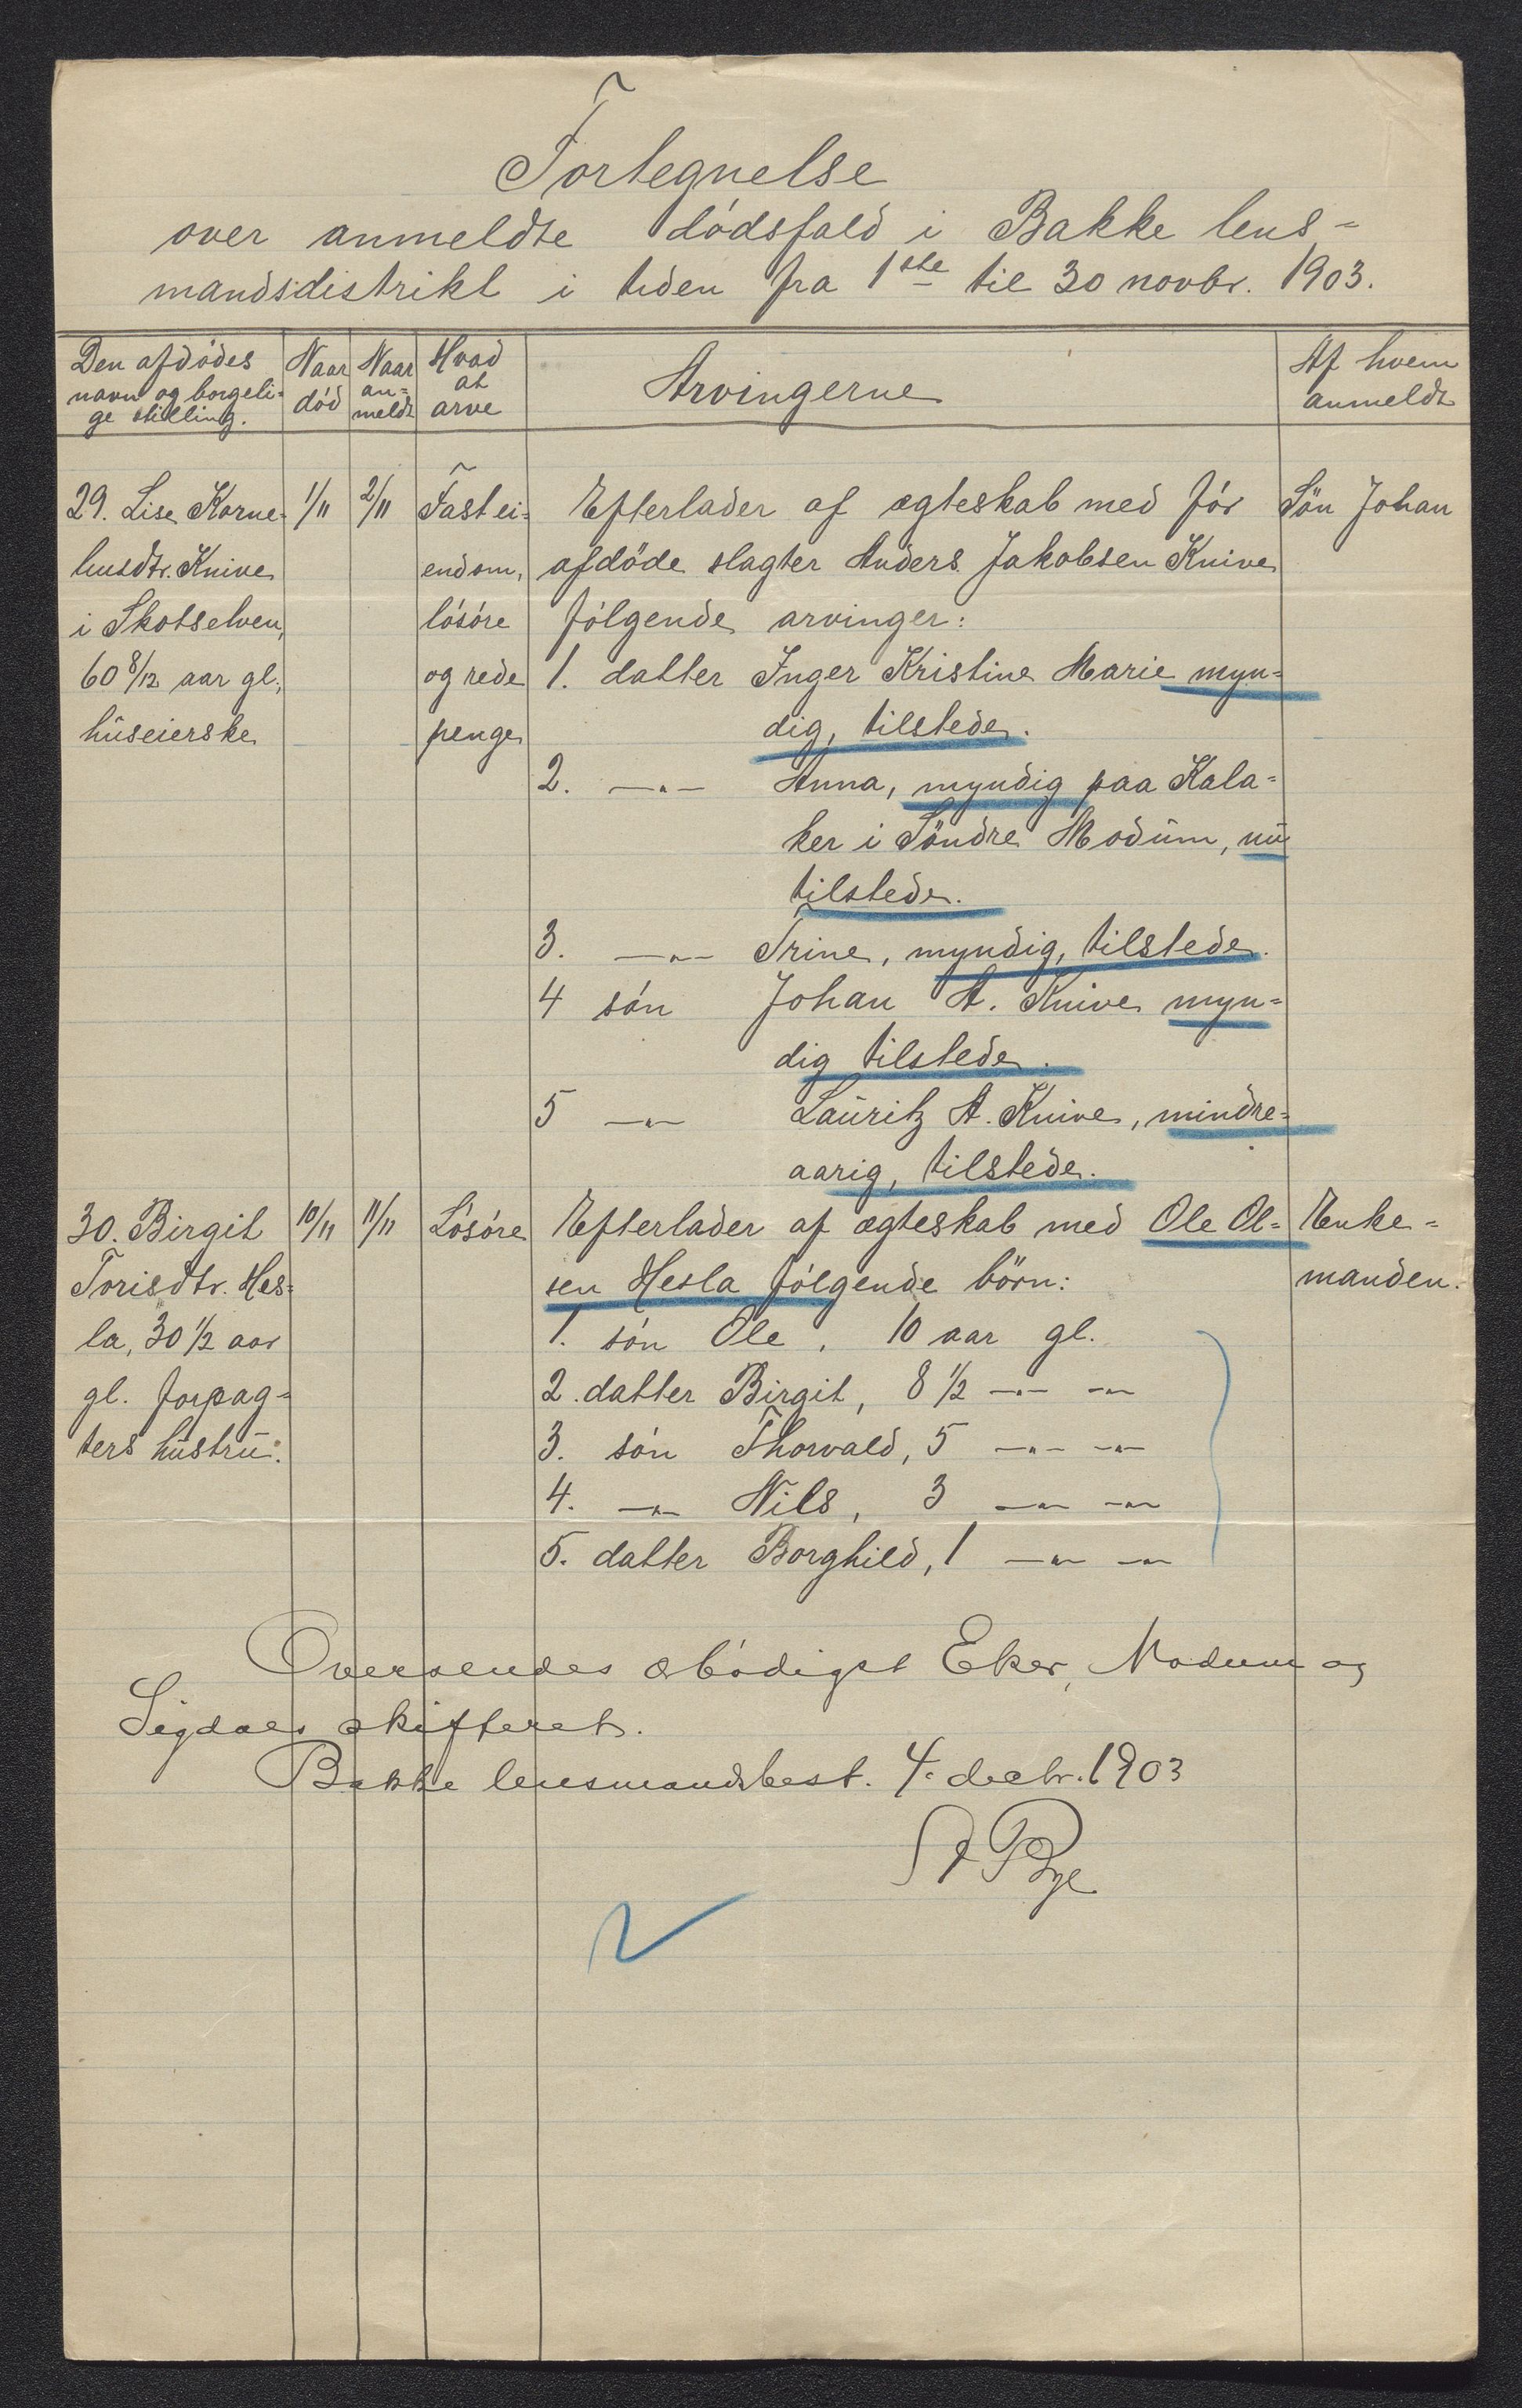 Fortegnelse
over anmeldte dødsfald i Bakke lens-
mandsdistrikt i tiden fra 1ste til 30 novbr. 1903.
Den afdødes navn og borgeli- ge stilling.
Naar død
Naar an- meldt
Hvad at arve
Arvingerne
Af hvem anmeldt
29. Lise Korne- 1/11 2/11 Fast ei- Efterlader af ægteskab med før Søn Johan
liusdtr. Knive endom, afdøde slagter Anders Jakobsen Knive
i Skotselven, løsøre følgende arvinger:
60 8/12 aar gl., og rede 1. datter Inger Kristine Marie myn-
huseierske penge dig, tilstede.
2. —"— Anna, myndig paa Kala-
ker i Søndre Modum, nu
tilstede.
3. —"— Trine, myndig, tilstede.
4 søn Johan A. Knive myn-
dig tilstede.
5 —"— Lauritz A. Knive, mindre-
aarig, tilstede.
30. Birgit 10/11 11/11 Løsøre Efterlader af ægteskab med Ole Ol- Enke-
Torisdtr. Hes- sen Hesla følgende børn: manden.
la, 30 1/2 aar 1. søn Ole, 10 aar gl.
gl. forpag- 2. datter Birgit, 8 1/2 —"— —"—
ters hustru. 3. søn Thorvald, 5 —"— —"—
4. —"— Nils, 3 —"— —"—
5. datter Borghild, 1 —"— —"—
Oversendes ærbødigst Eker, Modum og
Sigdals skifteret.
Bakke lensmandsbest. 4. decbr. 1903
Bye